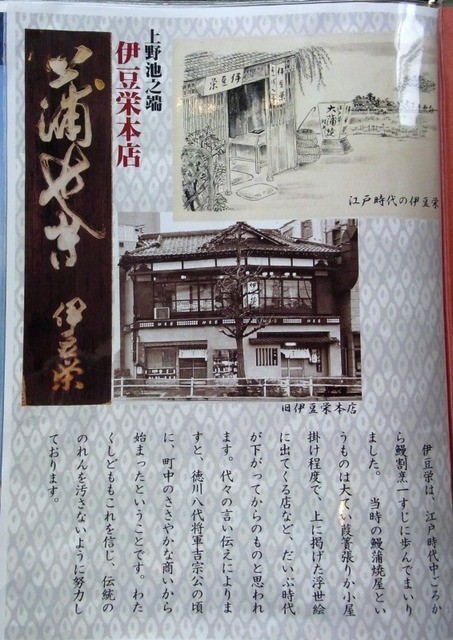 上野池之端
伊豆栄本店
蒲やき
伊豆栄
栄豆伊
大蒲焼
江戸時代の伊豆栄
旧伊豆栄本店
伊豆栄は、江戸時代中ごろか
ら鰻割烹一すじに歩んでまいり
ました。　当時の鰻蒲焼屋とい
うものは大てい葭簀張りか小屋
掛け程度で、上に掲げた浮世絵
に出てくる店など、だいぶ時代
が下がってからのものと思われ
ます。代々の言い伝えによりま
すと、徳川八代将軍吉宗公の頃
に、町中のささやかな商いから
始まったということです。わた
くしどももこれを信じ、伝統の
のれんを汚さないように努力し
ております。